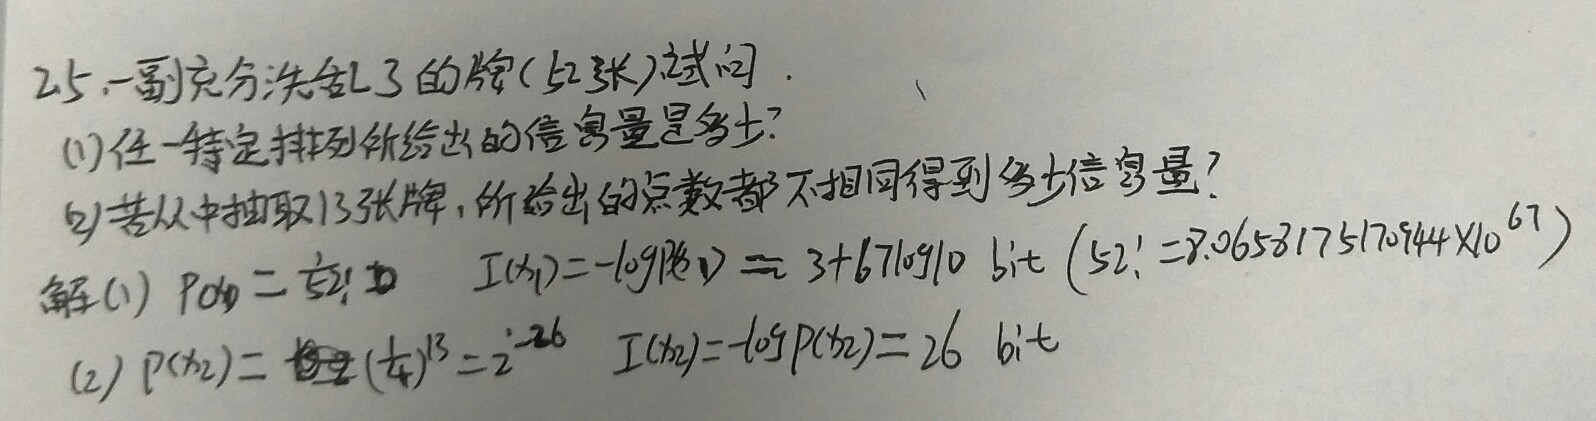 25.一副充分洗乱了的牌(52张),试问.
(1)任一特定排列所给出的信息量是多少?
(2)若从中抽取13张牌,所给出的点数都不相同得到多少信息量?
解(1) P(x₁) = 1/52! I(x₁) = -logP(x₁) ≈ 3+67log10 bit (52! = 8.0658175170944×10⁶⁷)
(2) P(x₂) = (1/4)¹³ = 2⁻²⁶ I(x₂) = -logP(x₂) = 26 bit